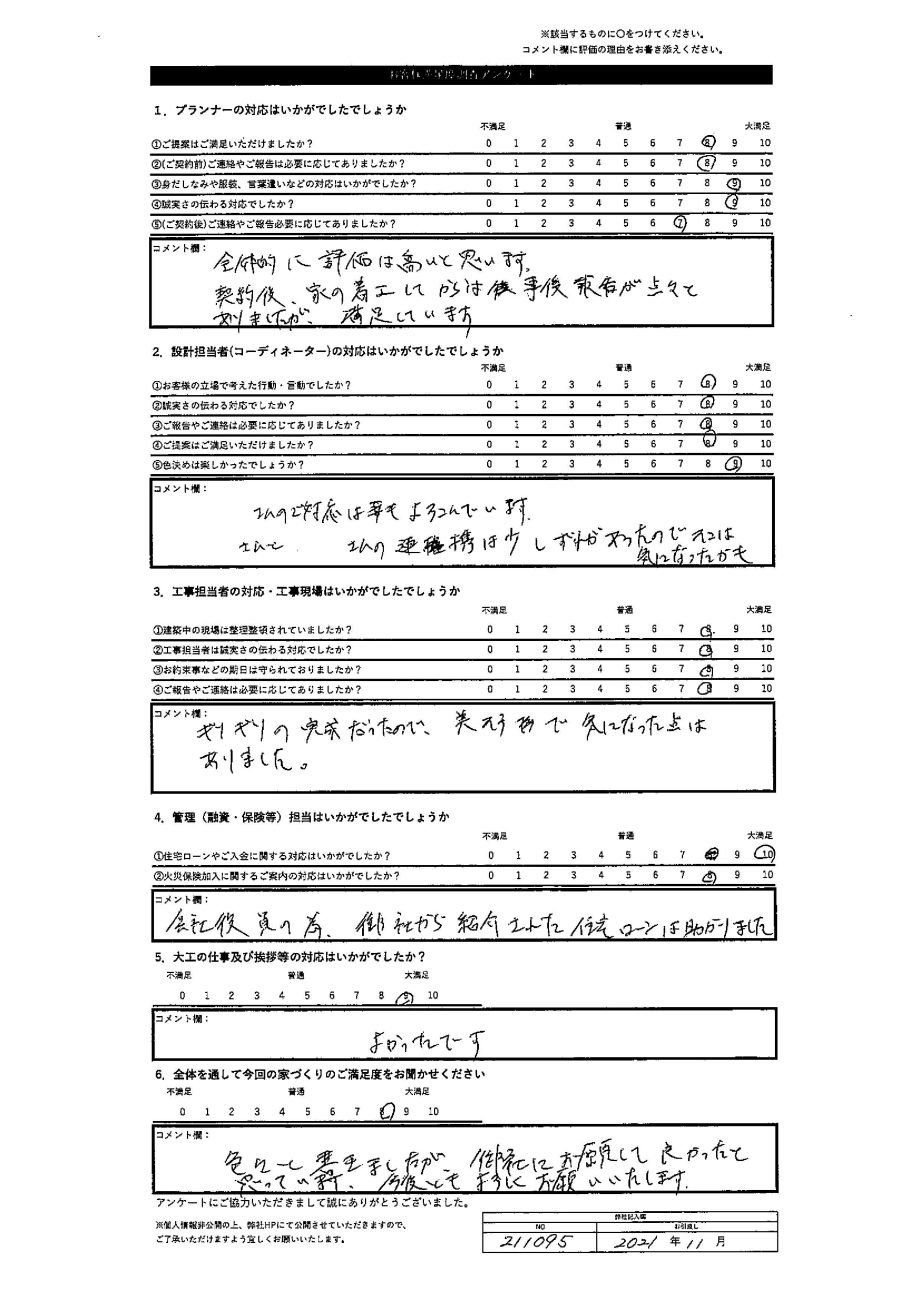 ※該当するものに〇をつけてください。
コメント欄に評価の理由をお書き添えください。
お客様満足度調査アンケート
1．プランナーの対応はいかがでしたでしょうか
不満足 普通 大満足
①ご提案はご満足いただけましたか？ 0 1 2 3 4 5 6 7 8 9 10
②(ご契約前)ご連絡やご報告は必要に応じてありましたか？ 0 1 2 3 4 5 6 7 8 9 10
③身だしなみや服装、言葉遣いなどの対応はいかがでしたか？ 0 1 2 3 4 5 6 7 8 9 10
④誠実さの伝わる対応でしたか？ 0 1 2 3 4 5 6 7 8 9 10
⑤(ご契約後)ご連絡やご報告必要に応じてありましたか？ 0 1 2 3 4 5 6 7 8 9 10
コメント欄：
全体的に評価は高いと思います。
契約後、家の着工してからは事後報告が点々と
ありましたが、満足しています
2．設計担当者(コーディネーター)の対応はいかがでしたでしょうか
不満足 普通 大満足
①お客様の立場で考えた行動・言動でしたか？ 0 1 2 3 4 5 6 7 8 9 10
②誠実さの伝わる対応でしたか？ 0 1 2 3 4 5 6 7 8 9 10
③ご報告やご連絡は必要に応じてありましたか？ 0 1 2 3 4 5 6 7 8 9 10
④ご提案はご満足いただけましたか？ 0 1 2 3 4 5 6 7 8 9 10
⑤色決めは楽しかったでしょうか？ 0 1 2 3 4 5 6 7 8 9 10
コメント欄：
さんのご対応は妻もよろこんでいます。
さんと さんの連携は少しずれがあったのでそこは
気になったかも
3．工事担当者の対応・工事現場はいかがでしたでしょうか
不満足 普通 大満足
①建築中の現場は整理整頓されていましたか？ 0 1 2 3 4 5 6 7 8 9 10
②工事担当者は誠実さの伝わる対応でしたか？ 0 1 2 3 4 5 6 7 8 9 10
③お約束事などの期日は守られておりましたか？ 0 1 2 3 4 5 6 7 8 9 10
④ご報告やご連絡は必要に応じてありましたか？ 0 1 2 3 4 5 6 7 8 9 10
コメント欄：
ギリギリの完成だったので、美 で気になった点は
ありました。
4．管理（融資・保険等）担当はいかがでしたでしょうか
不満足 普通 大満足
①住宅ローンやご入金に関する対応はいかがでしたか？ 0 1 2 3 4 5 6 7 8 9 10
②火災保険加入に関するご案内の対応はいかがでしたか？ 0 1 2 3 4 5 6 7 8 9 10
コメント欄：
会社役員の為、御社から紹介された住宅ローンは助かりました
5．大工の仕事及び挨拶等の対応はいかがでしたか？
不満足 普通 大満足
0 1 2 3 4 5 6 7 8 9 10
コメント欄：
よかったです
6．全体を通して今回の家づくりのご満足度をお聞かせください
不満足 普通 大満足
0 1 2 3 4 5 6 7 8 9 10
コメント欄：
色々と ましたが、御社にお願いして良かったと
思っています、今後ともよろしくお願いいたします。
アンケートにご協力いただきまして誠にありがとうございました。
※個人情報非公開の上、弊社HPにて公開させていただきますので、
ご了承いただけますよう宜しくお願いいたします。
弊社記入欄
NO お引渡し
211095 2021年11月